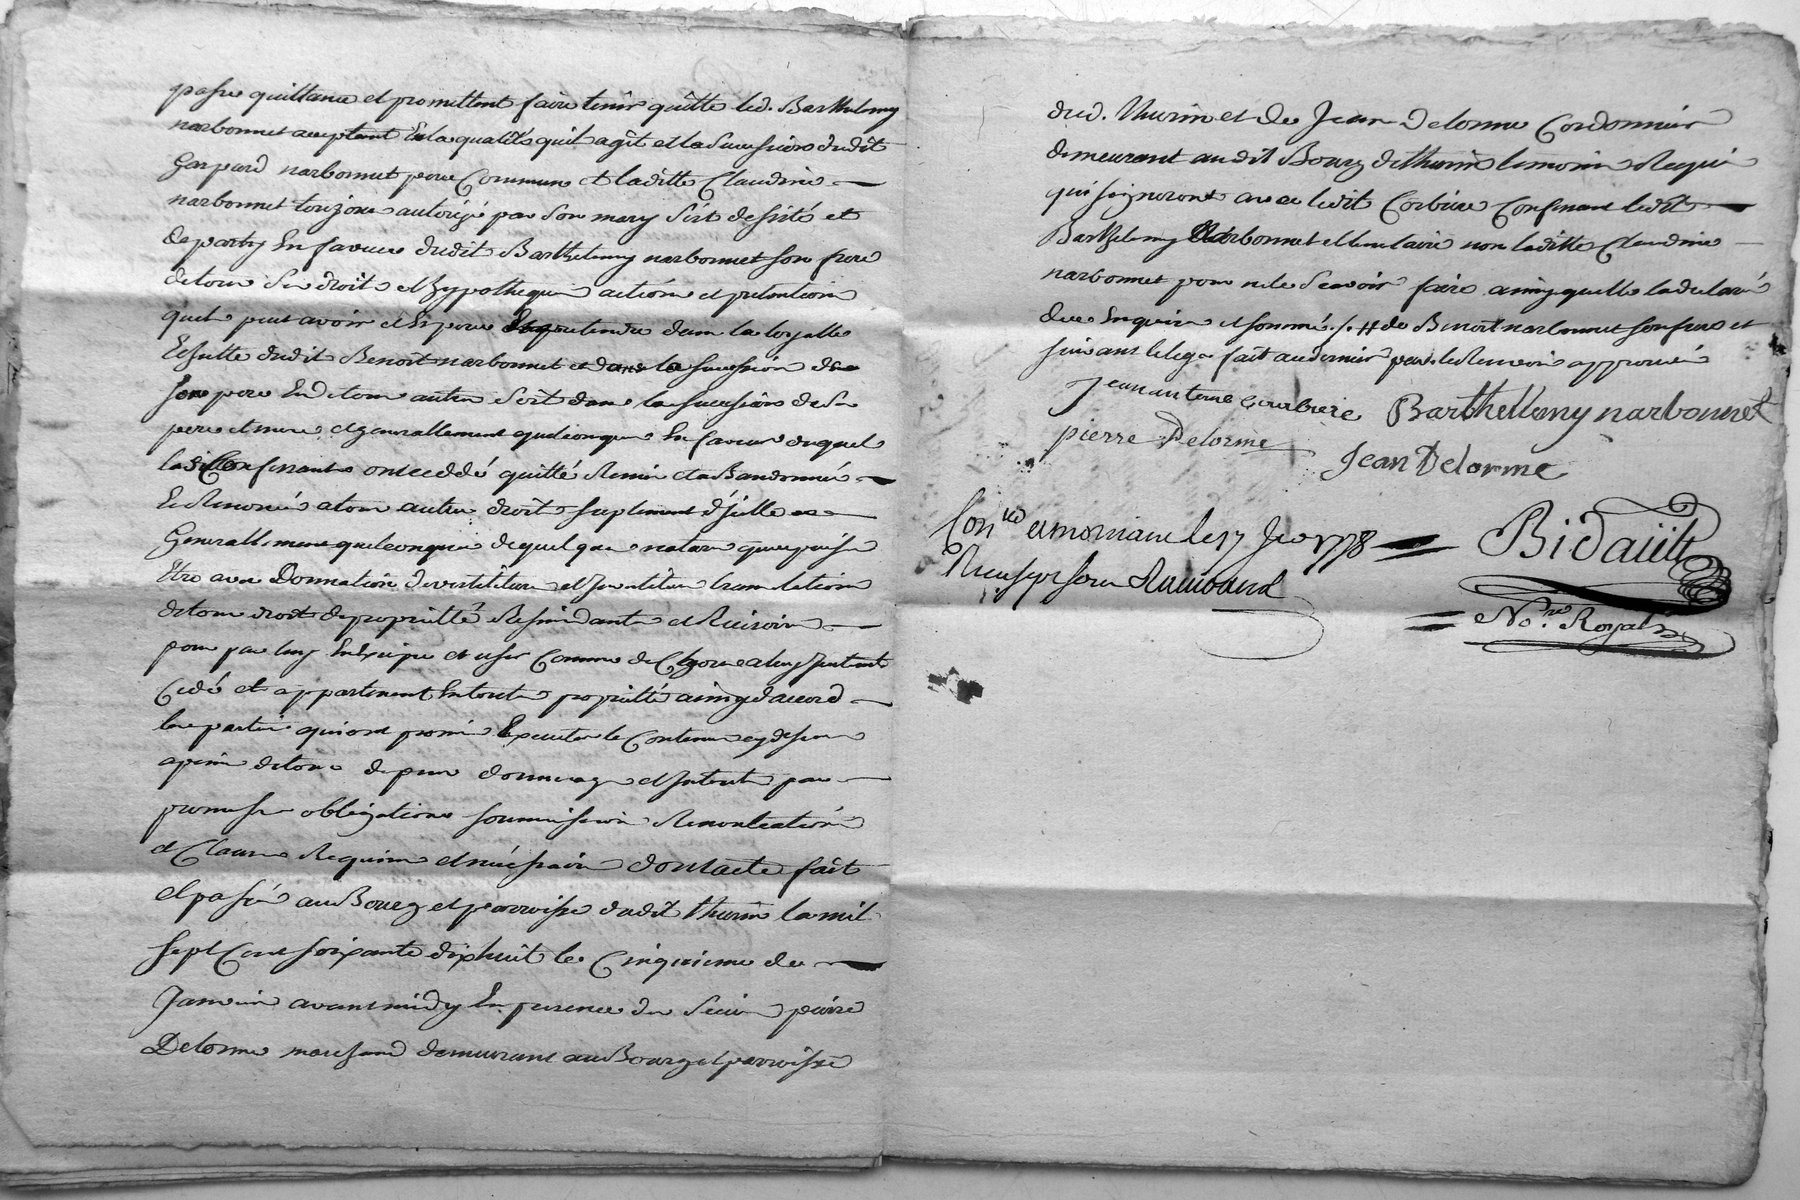 passé quittance et promettent faire tenir quitte led. Barthelemy
narbonnet acceptant Es la qualités quil agit et la Succession dudit
Gaspard narbonnet pere Commun et laditte Claudine
narbonnet toujour autorizé par Son mary Sest desisté et
departy En faveur dudit Barthelemy narbonnet son frere
de tous Ses droits et hypotheques actions et pretentions
quels peut avoir et Espere pretendre dans la loyalle
Echutte dudit Benoit narbonnet et dans la succession de
Son pere En tous autre Soit dans la succession de Ses
pere et mere et generallement quelconque En faveur duquel
laditte Confessante onteeddé quitté Remis et aBandonné
Et Renoncé a tous autre droits supplement d'icelle
Generallement quelconque de quelque nature que puisse
Etre avec Donnation devestiture et Investiture translation
de tous droits de propriétté Resindants et Resisoires
pour par luy En Disposer et user Comme de Chose a luy Justement
Cedé et appartenant En toute propriétté ainsy d'accord
les parties qui ont promis Executer le Contenu cy dessus
a peine de tous depens dommages et Interets par
promesse obligations soumissions Renontiations
et Clauses Requises et nécessaires dont acte fait
et passé au Bourg et parroisse dudit thurin la mil
sept Cent soixante dixhuit le Cinquieme de
Janvier avant midy En presence de Sieur pierre
Delorme marchand demeurant au Bourg et parroisse
dud. thurin et de Jean Delorme Cordonnier
demeurant audit Bourg de thurin temoins Requis
qui signeront avec ledit Corbiere Confessant ledit
Barthelemy Narbonnet et le notaire non laditte Claudine
narbonnet pour ne le Scavoir faire ainsy quelle la declaré
de ce Enquise et sommé ./. # de Benoit narbonnet son frere et
suivant le legs fait au dernier par. le Renvoi approuvé
jean antoine courbiere Barthellemy narbonnet
pierre Delorme
Jean Delorme
Con.lé a mornant le 17 Jer 1778 Bidault
Reçu Raimond
No.re Royal